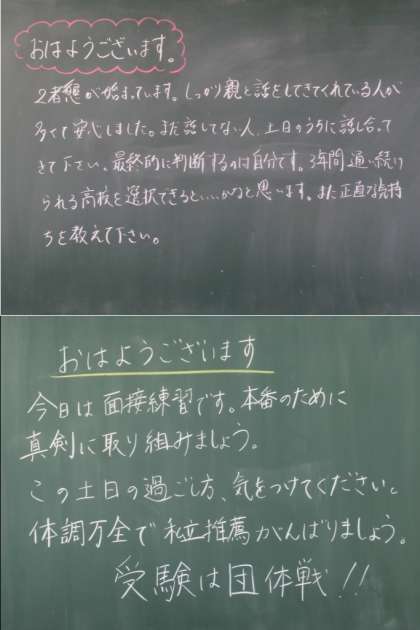 おはようございます。
2者懇が始まっています。しっかり親と話をしてきてくれている人が
多くて安心しました。まだ話してない人、土日のうちに話し合って
きて下さい。最終的に判断するのは自分です。3年間通い続け
られる高校を選択できるといいかなと思います。また正直な気持
ちを教えて下さい。
おはようございます
今日は面接練習です。本番のために
真剣に取り組みましょう。
この土日の過ごし方、気をつけてください。
体調万全で私立推薦がんばりましょう。
受験は団体戦!!